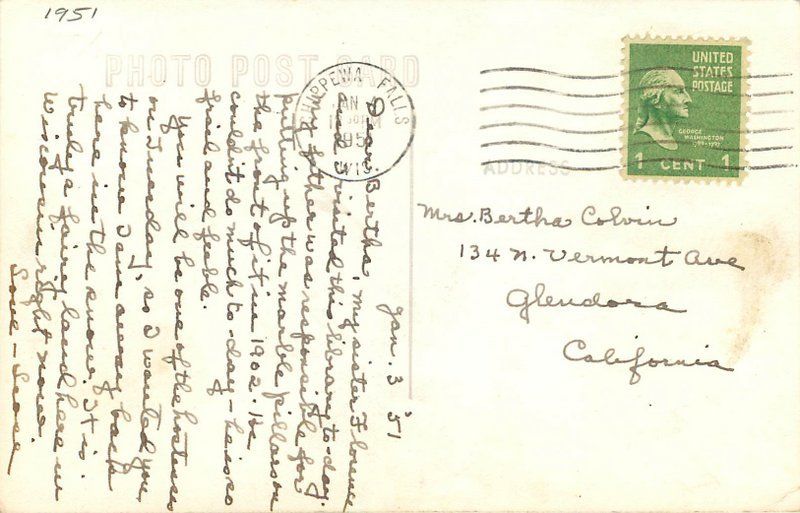 1951
PHOTO POST CARD
CHIPPEWA FALLS
JAN
195
WIS.
UNITED
STATES
POSTAGE
GEORGE
WASHINGTON
1 CENT 1
ADDRESS
Mrs. Bertha Colvin
134 N. Vermont Ave
Glendora
California
Jan. 3 '51
Dear Bertha, my sister Florence
visited this library to-day.
My father was responsible for
putting up the marble pillars on
the front of it in 1902. He
couldn't do much to-day - he is so
frail and feeble.
You will be one of the hostesses
on Tuesday, so I wanted you
to know I am away back
here in the snow. It is
truly a fairy land here in
Wisconsin right now.
Love -